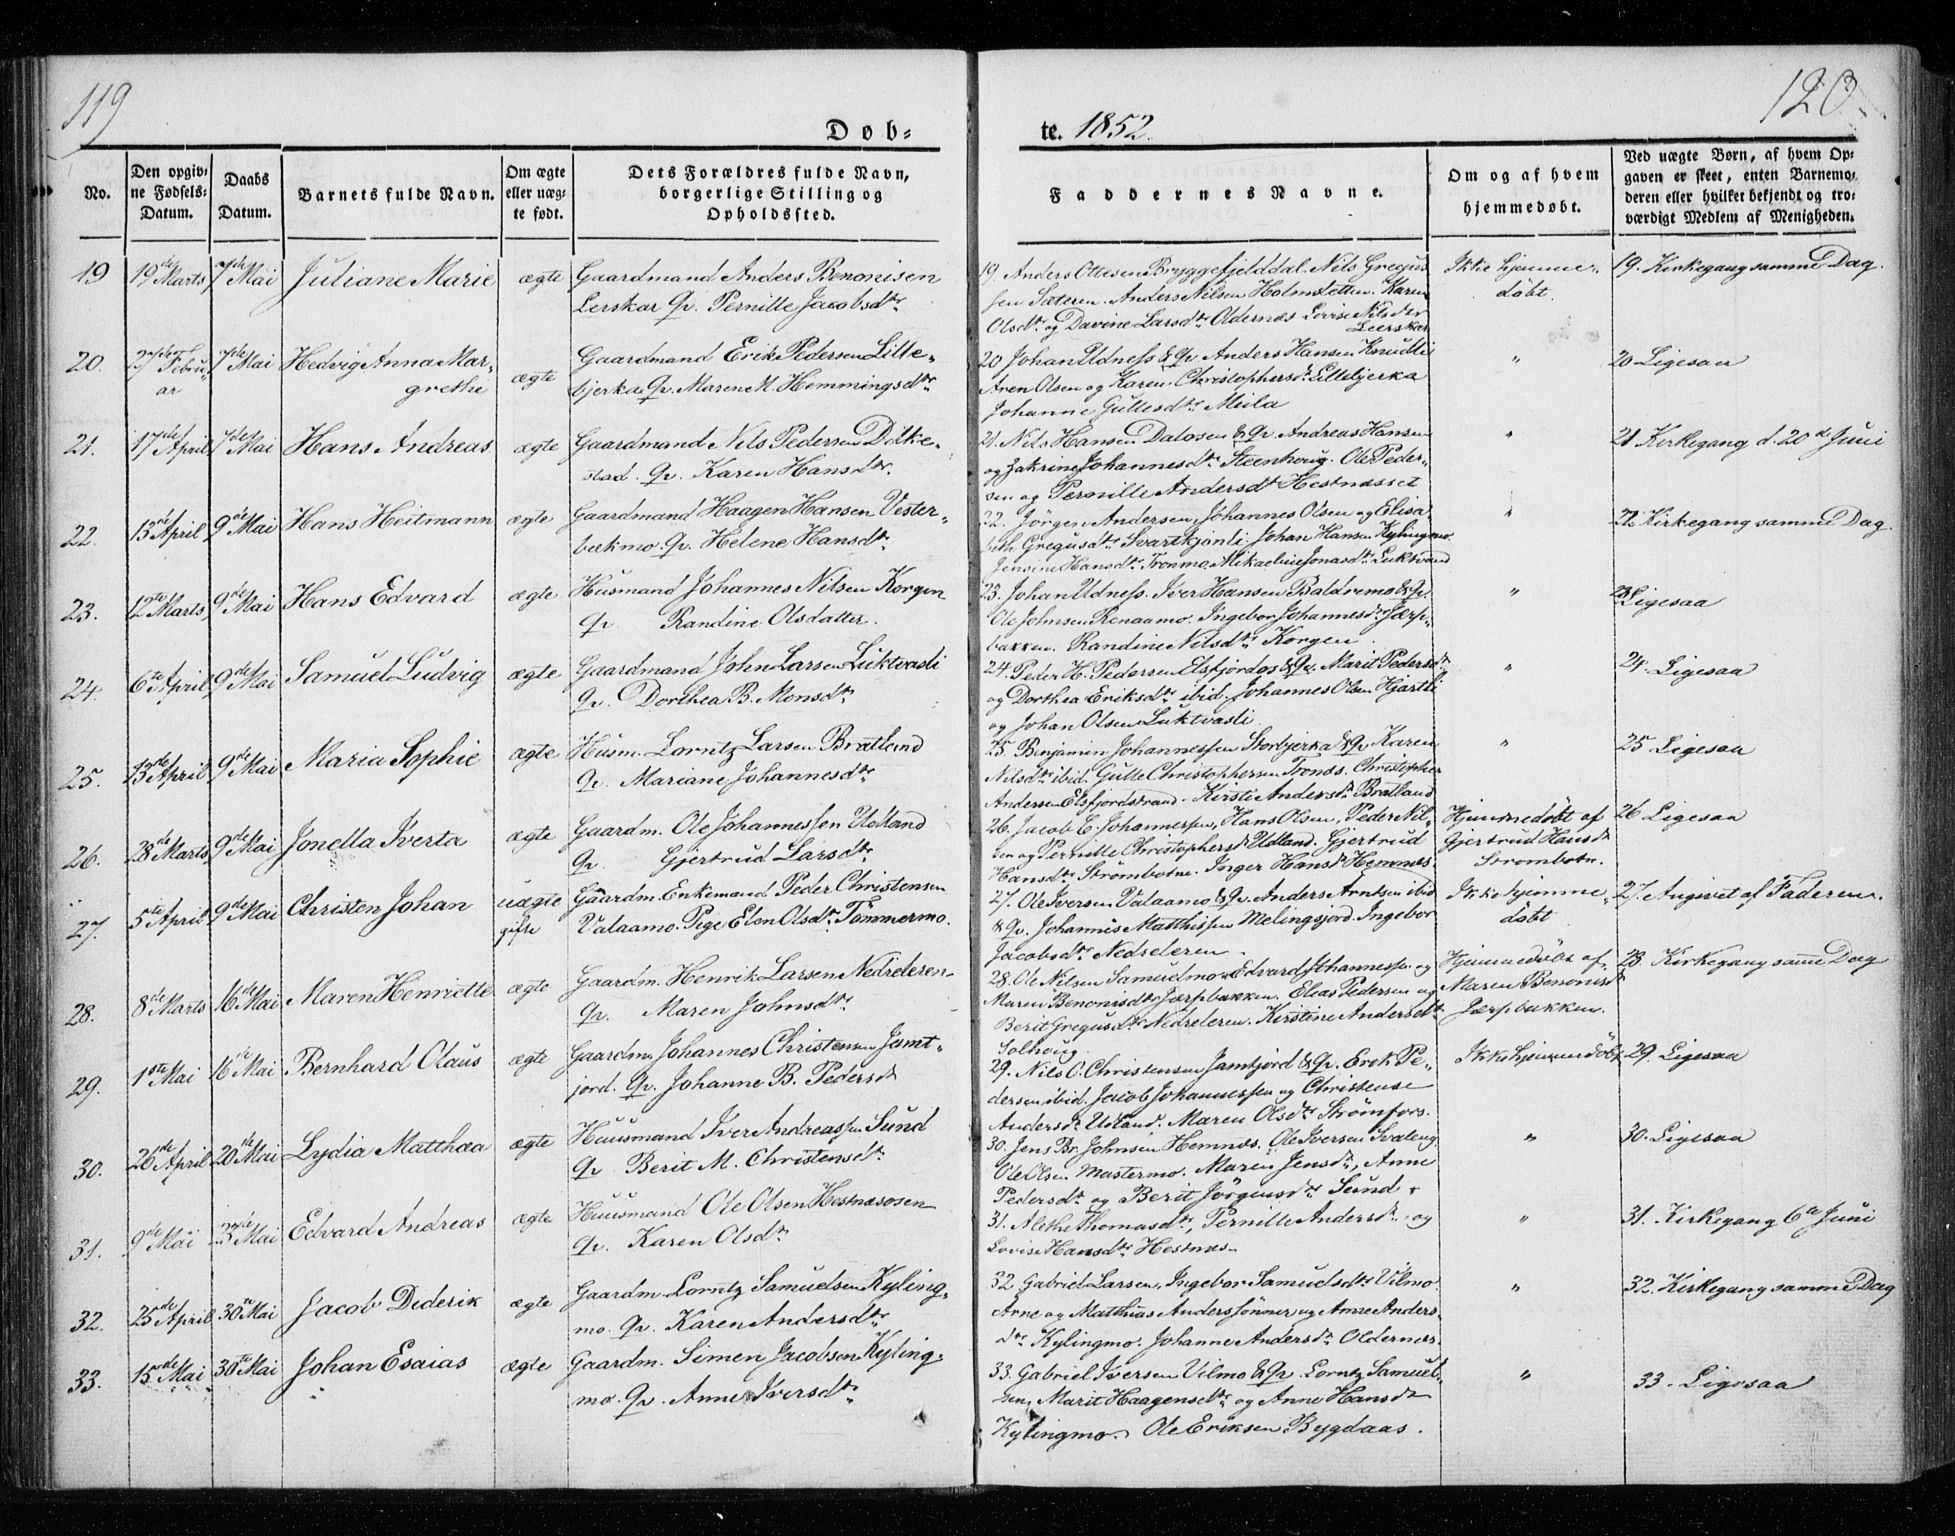 119
120.
Døb-
te. 1852.
No.
Den opgiv-
ne Fødsels-
Datum.
Daabs
Datum.
Barnets fulde Navn.
Om ægte
eller uæg-
te født.
Dets Forældres fulde Navn,
borgerlige Stilling og
Opholdssted.
Faddernes Navne.
Om og af hvem
hjemmedøbt.
Ved uægte Børn, af hvem Op-
gaven er skeet, enten Barnemo-
deren eller hvilket bekjendt og tro-
værdigt Medlem af Menigheden.
19
19de Marts
7de Mai
Juliane Marie
ægte
Gaardmand Anders Benonisen
Lerskar Qv. Pernille Jacobsdtr
19 Anders Ottesen Bryggefjelddal. Nils Gregus
sen Sæteren. Anders Nilsen Holmsletten. Karen
Olsdtr og Davine Larsdtr Oldernæs Lovise Nilsdtr
Leerskar
Ikke hjemme-
døbt.
19. Kirkegang samme Dag.
20.
27de Febru-
ar
7de Mai
Hedvig Anna Mar-
grethe
ægte
Gaardmand Erik Pedersen Lille-
bjerka Qv. Maren M. Hemmingsdtr
20 Johan Udness & Qv. Anders Hansen Knudli
Aren Olsen og Karen Christophersdr Lillebjerka
Johanne Gullesdtr Meila
"
20 Ligesaa
21.
17de April
7de Mai
Hans Andreas
ægte
Gaardmand Nils Pedersen Dilke-
stad. Qv. Karen Hansdtr.
21. Nils Hansen Dalosen & Qv. Andreas Hansen
og Zakrine Johannesdtr Steenhoug. Ole Peder-
sen og Pernille Andersdtr Hestnæsset
"
21 Kirkegang d. 20de Juni
22.
13de April
9de Mai
Hans Heitmann
ægte
Gaardmand Haagen Hansen Vester-
bækmo. Qv. Helene Hansdtr.
22. Jörgen Andersen, Johannes Olsen og Elisa
beth Gregusdtr Svartkjønli. Johan Hansen Kylingmo
Jensine Hansdtr Tronmo Mikaeline Jonasdtr Luktvand
"
22 Kirkegang samme Dag.
23.
12te Marts
9de Mai
Hans Edvard
ægte
Husmand Johannes Nilsen Korgen
Qv. Randine Olsdatter.
23. Johan Udness. Iver Hansen Baldremo & Qv.
Ole Johnsen Renaamo. Ingebor Johannesdtr Jærp-
bakken. Randine Nilsdtr Korgen.
"
23 Ligesaa
24.
6te April
9de Mai
Samuel Ludvig
ægte
Gaardmand John Larsen Luktvasli
Qv. Dorthea B. Monsdtr
24. Peder H. Pedersen Elsfjordos & Qv. Marit Pedersdtr
og Dorthea Eriksdtr ibid. Johannes Olsen Hjartli
og Johan Olsen Luktvasli.
"
24. Ligesaa
25.
13de April
9de Mai
Maria Sophie
ægte
Husm. Lorntz Larsen Bratland
Qv. Mariane Johannesdtr
25. Benjamin Johannessen Storbjerka & Qv. Karen
Nilsdtr ibid. Gulle Christophersen Tronds. Christopher
Andersen Elsfjordstrand. Kirsti Andersdr Bratland
"
25 Ligesaa
26.
28de Marts
9de Mai
Jonella Iverta
ægte
Gaardm. Ole Johannessen Utland
Qv. Gjertrud Larsdtr
26. Jacob E. Johannessen, Hans Olsen, Peder Nil-
sen og Pernille Christophersdr Utland. Gjertrud
Hansdtr Strømbotne. Inger Hansdr Hemnæs.
Hjemmedøbt af
Gjertrud Hansdr
Strømbotn.
26 Ligesaa
27.
5te April
9de Mai
Christen Johan
uægte
gifte
Gaardm. Enkemand Peder Christensen
Valaamo. Pige Elen Olsdtr Tømmermo.
27. Ole Iversen Valaamo & Qv. Anders Arntsen ibid
& Qv. Johannes Matthissen Melingsjord. Ingebor
Jacobsdtr Nedreleren.
Ikke hjemme-
døbt
27. Angivet af Faderen.
28.
8de Marts
16de Mai
Maren Henriette
ægte
Gaardm. Henrik Larsen Nedreleren
Qv. Maren Johnsdtr
28. Ole Nilsen Samuelmo. Edvard Johannessen og
Maren Benonisdtr Jærpbakken. Elias Pedersen og
Berit Gregusdtr Nedreleren. Kirstine Andersdtr
Solhoug.
Hjemmedøbt af
Maren Benonisdr
Jærpbakken.
28. Kirkegang samme Dag
29.
1ste Mai
16de Mai
Bernhard Olaus
ægte
Gaardm. Johannes Christensen Jamt-
jord. Qv. Johanne B. Pedersdr
29. Nils O. Christensen Jamtjord & Qv. Erik Pe-
dersen ibid. Jacob Johannessen og Christense
Andersdr Utland. Maren Olsdtr Strømfors.
Ikke hjemmedøbt
29. Ligesaa
30.
26de April
20de Mai
Lydia Matthea
ægte
Huusmand Iver Andreassen Sund
Qv. Berit M. Christensdtr.
30. Jens Br. Johnsen Hemnæs. Ole Iversen Svaleng
Ole Olsen Mastermo. Maren Jensdr, Anne
Pedersdtr og Berit Jörgensdtr Sund.
"
30. Ligesaa
31.
9de Mai
23de Mai
Edvard Andreas
ægte
Huusmand Ole Olsen Hestnæsosen
Qv. Karen Olsdtr
31. Alethe Thomasdtr, Pernille Andersdr. og
Lovise Hansdtr Hestnæs.
"
31. Kirkegang 6te Juni
32.
25de April
30te Mai
Jacob Diderik
ægte
Gaardm. Lorntz Samuelsen Kyling-
mo. Qv. Karen Andersdtr
32 Gabriel Larsen, Ingebor Samuelsdtr Vilmo
Arne og Matthias Anderssønner og Anne Anders-
dtr Kylingmo. Johanne Andersdr Oldernæs.
"
32. Kirkegang samme Dag
33.
15de Mai
30te Mai
Johan Esaias
ægte
Gaardm. Simen Jacobsen Kyling-
mo. Qv. Anne Iversdtr
33. Gabriel Iversen Vilmo & Qv. Lorntz Samuel-
sen, Marit Haagensdtr og Anne Hansdr
Kylingmo. Ole Eriksen Bygdaas.
"
33. Ligesaa